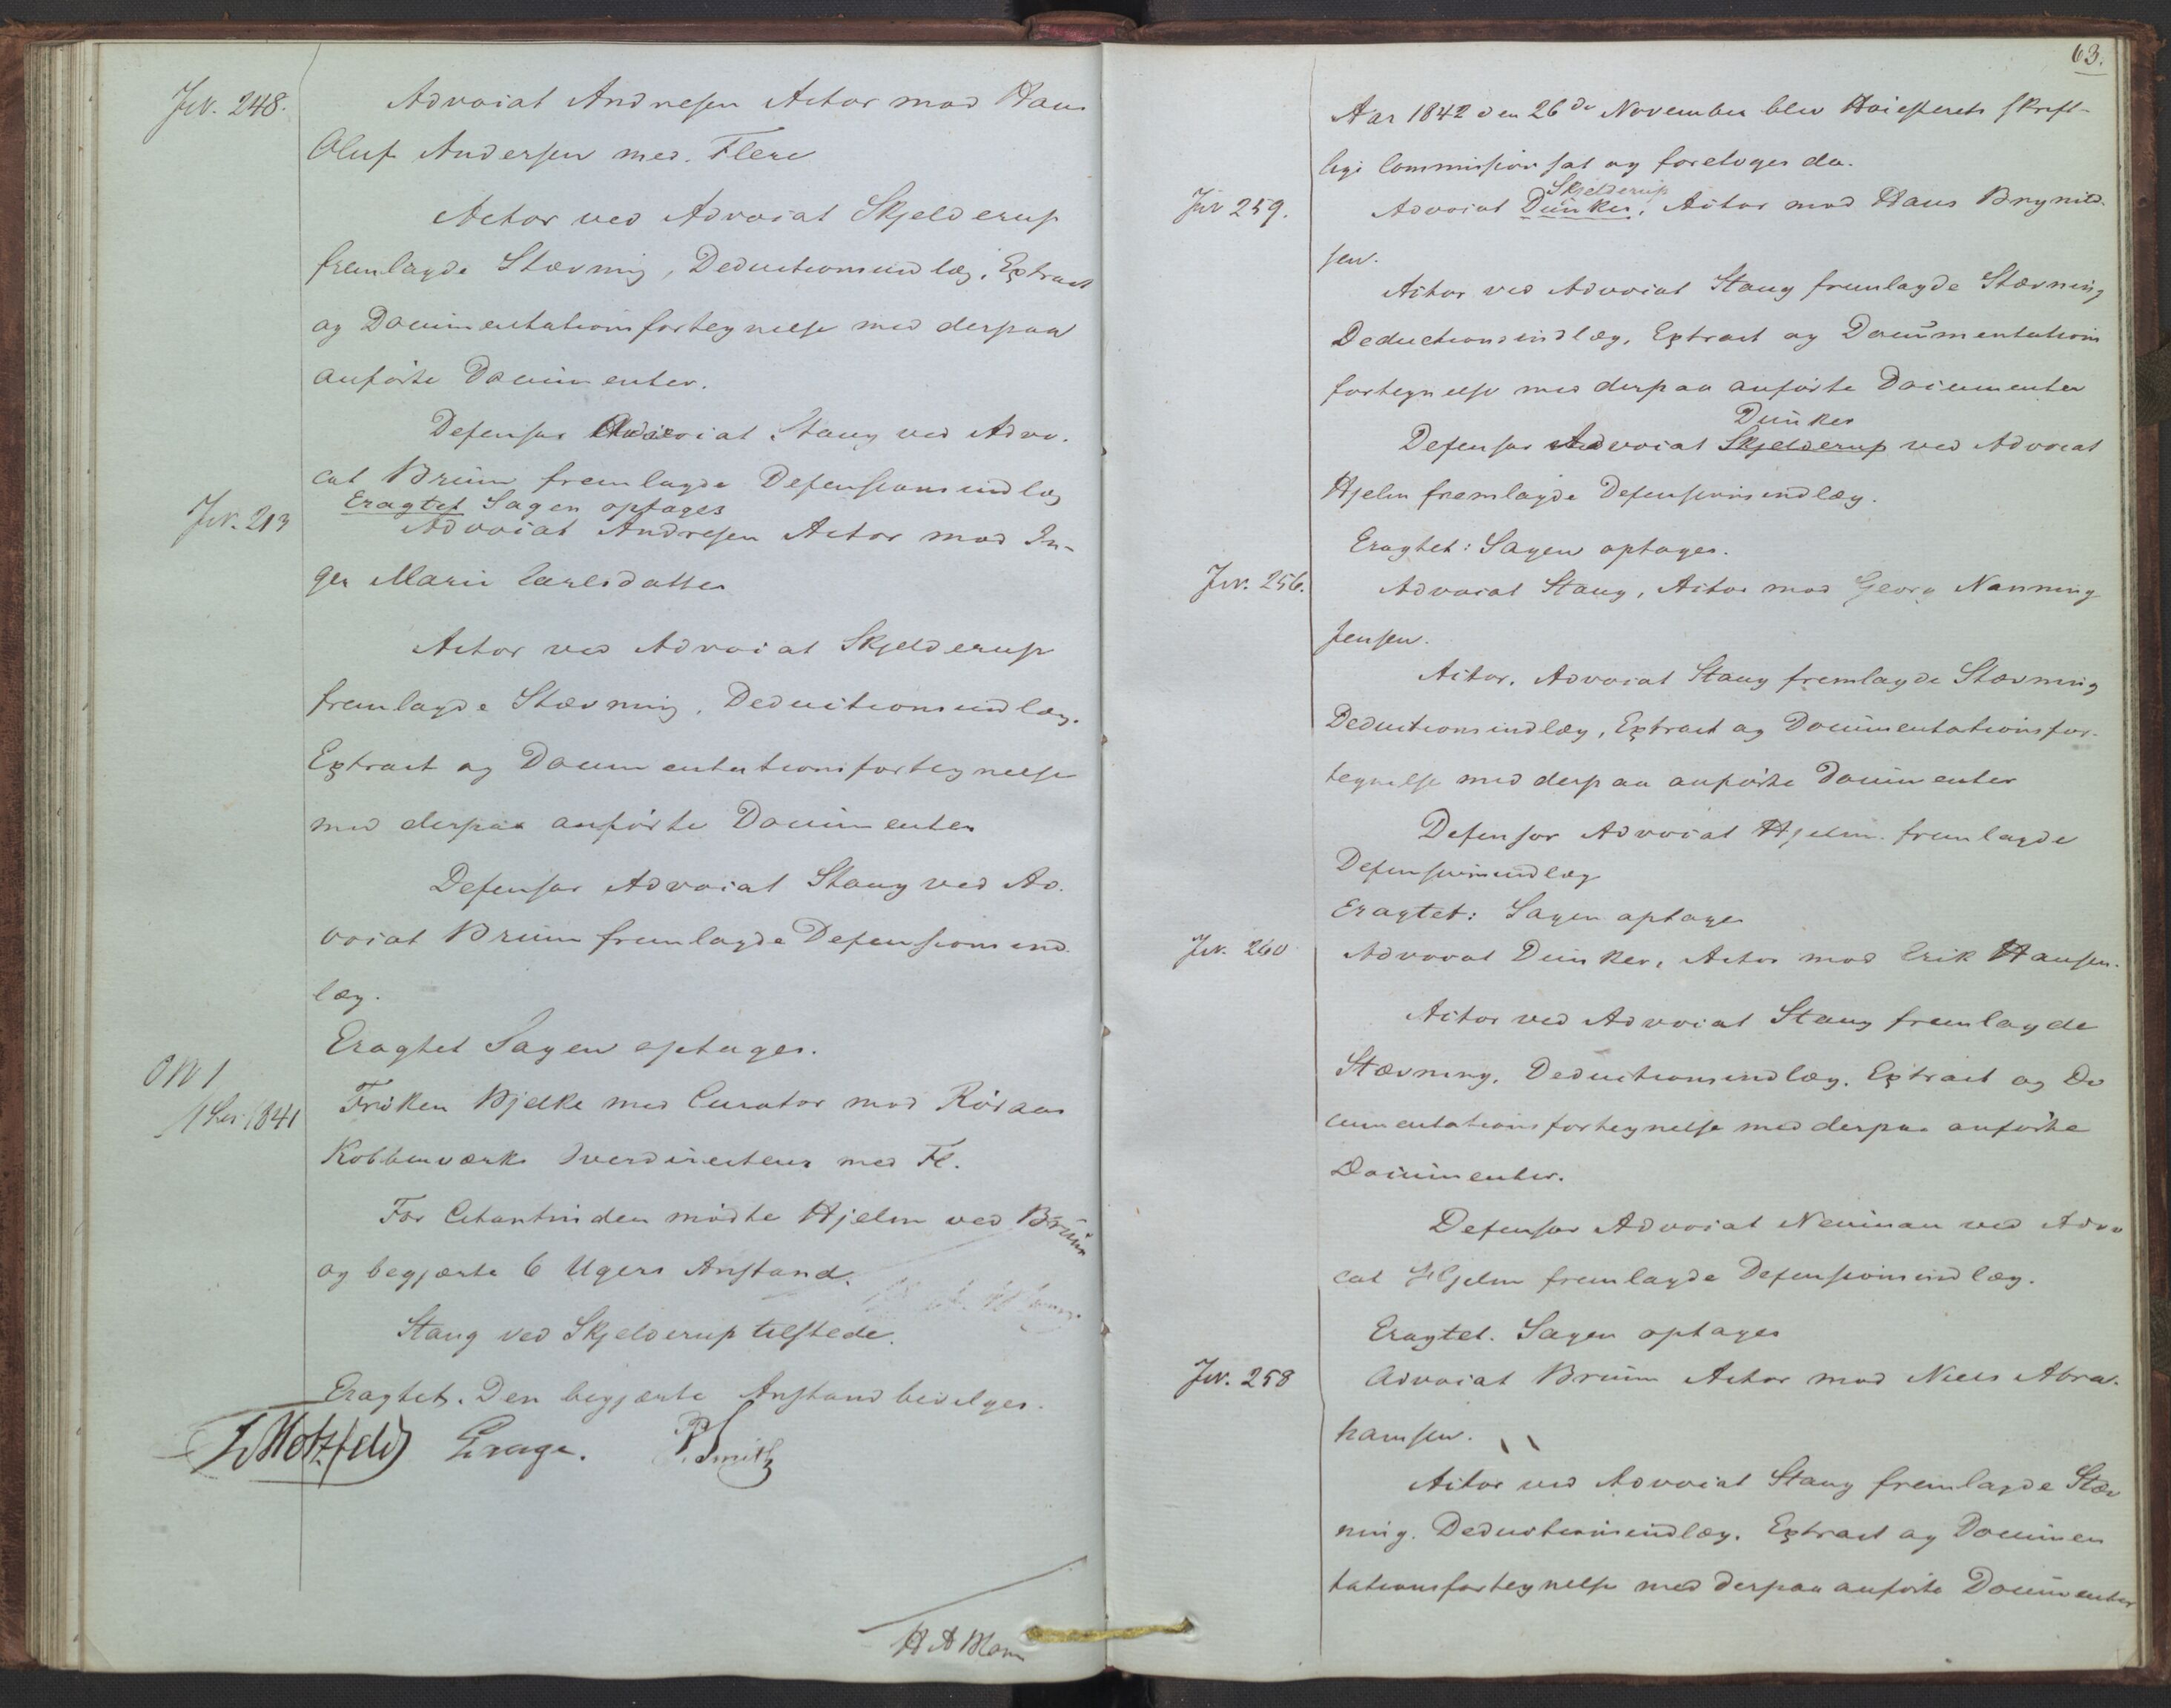 Jvr. 248.
Advocat Andresen Actor mod Hans
Oluf Andersen med Flere
Actor ved Advocat Skjelderup
fremlagde Stævning, Deductionsindlæg, Extract
og Documentationsfortegnelse med derpaa
anførte Documenter.
Defensor Advocat Stang ved Advo-
cat Bruun fremlagde Defensionsindlæg
Eragtet Sagen optages
Jvr. 213
Advocat Andresen Actor mod In-
ger Marie Carlsdatter
Actor ved Advocat Skjelderup
fremlagde Stævning, Deductionsindlæg.
Extract og Documentationsfortegnelse
med derpaa anførte Documenter
Defensor Advocat Stang ved Ad-
vocat Bruun fremlagde Defensionsind
læg.
Eragtet Sagen optages.
1841
Frøken Bjelke med Curator mod Røraas
Kobberværks Overdirecteur med Fl.
For Citantinden mødte Hjelm ved Bruun
og begjærte 6 Ugers Anstand.
Stang ved Skjelderup tilstede.
Eragtet. Den begjærte Anstand bevilges.
Motzfeldt Krage. P. Smith
63.
Aar 1842 den 26de November blev Høiesterets skrift-
lige Commission sat og foretoges da.
Skjelderup
Jvr 259.
Advocat Dunker, Actor mod Hans Brynild-
sen.
Actor ved Advocat Stang fremlagde Stævning
Deductionsindlæg, Extract og Documentations
fortegnelse med derpaa anførte Documenter
Dunker
Defensor Advocat Skjelderup ved Advocat
Hjelm fremlagde Defensionsindlæg.
Eragtet: Sagen optages.
Jvr. 256.
Advocat Stang, Actor mod Georg Nanning
Jensen.
Actor, Advocat Stang fremlagde Stævning
Deductionsindlæg, Extract og Documentationsfor-
tegnelse med derpaa anførte Documenter
Defensor Advocat Hjelm fremlagde
Defensionsindlæg
Eragtet: Sagen optages
Jvr. 260
Advocat Dunker, Actor mod Erik Hansen.
Actor ved Advocat Stang fremlagde
Stævning, Deductionsindlæg, Extract og Do
cumentationsfortegnelse med derpaa anførte
Documenter.
Defensor Advocat Neuman ved Advo
cat Hjelm fremlagde Defensionsindlæg.
Eragtet. Sagen optages
Jvr. 258
Advocat Bruun Actor mod Niels Abra-
hamsen.
Actor ved Advocat Stang fremlagde Stæv
ning, Deductionsindlæg, Extract og Documen
tationsfortegnelse med derpaa anførte Documenter